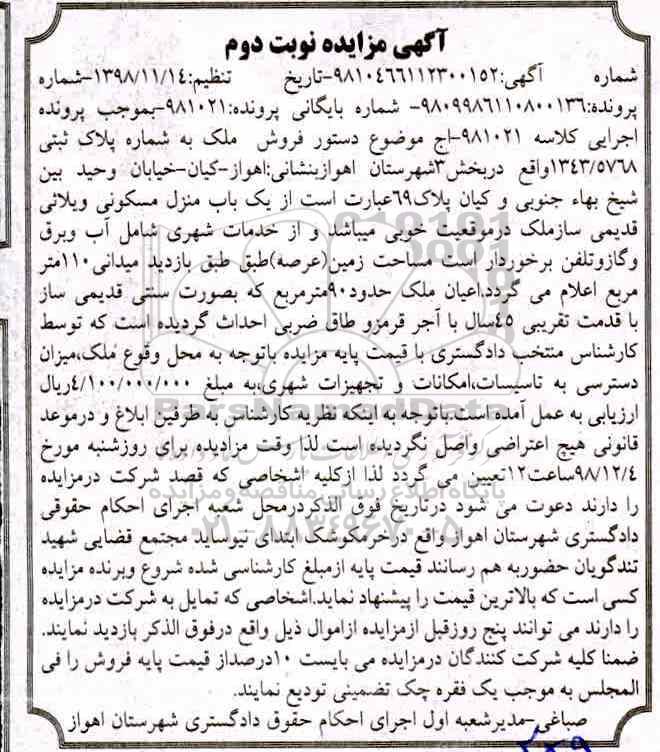 آگهی مزایده نوبت دوم
شماره آگهی:۹۸۱۰۴۶۶۱۱۲۳۰۰۱۵۲-تاریخ تنظیم:۱۳۹۸/۱۱/۱۴-شماره
پرونده:۹۸۰۹۹۸۶۱۱۰۸۰۰۱۳۶- شماره بایگانی پرونده:۹۸۱۰۲۱-بموجب پرونده
اجرایی کلاسه ۹۸۱۰۲۱-اج موضوع دستور فروش ملک به شماره پلاک ثبتی
۱۳۴۳/۵۷۶۸واقع دربخش۳شهرستان اهوازبنشانی:اهواز-کیان-خیابان وحید بین
شیخ بهاء جنوبی و کیان پلاک۶۹عبارت است از یک باب منزل مسکونی ویلائی
قدیمی سازملک درموقعیت خوبی میباشد و از خدمات شهری شامل آب وبرق
وگازوتلفن برخوردار است مساحت زمین(عرصه)طبق طبق بازدید میدانی۱۱۰متر
مربع اعلام می گردد.اعیان ملک حدود۹۰مترمربع که بصورت سنتی قدیمی ساز
با قدمت تقریبی ۴۵سال با آجر قرمزو طاق ضربی احداث گردیده است که توسط
کارشناس منتخب دادگستری با قیمت پایه مزایده باتوجه به محل وقوع ملک،میزان
دسترسی به تاسیسات،امکانات و تجهیزات شهری،به مبلغ ۴/۱۰۰/۰۰۰/۰۰۰ریال
ارزیابی به عمل آمده است.باتوجه به اینکه نظریه کارشناس به طرفین ابلاغ و درموعد
قانونی هیچ اعتراضی واصل نگردیده است لذا وقت مزادیده برای روزشنبه مورخ
۹۸/۱۲/۴ساعت۱۲تعیین می گردد لذا ازکلیه اشخاصی که قصد شرکت درمزایده
را دارند دعوت می شود درتاریخ فوق الذکردرمحل شعبه اجرای احکام حقوقی
دادگستری شهرستان اهواز واقع درخرمکوشک ابتدای نیوساید مجتمع قضایی شهید
تندگویان حضوربه هم رسانند قیمت پایه ازمبلغ کارشناسی شده شروع وبرنده مزایده
کسی است که بالاترین قیمت را پیشنهاد نماید.اشخاصی که تمایل به شرکت درمزایده
را دارند می توانند پنج روزقبل ازمزایده ازاموال ذیل واقع درفوق الذکر بازدید نمایند.
ضمنا کلیه شرکت کنندگان درمزایده می بایست ۱۰درصداز قیمت پایه فروش را فی
المجلس به موجب یک فقره چک تضمینی تودیع نمایند.
صباغی-مدیرشعبه اول اجرای احکام حقوق دادگستری شهرستان اهواز
ParsNamadData
پایگاه اطلاع رسانی مناقصه و مزایده
۰۲۱-۸۸۳۴۹۶۷۰-۵